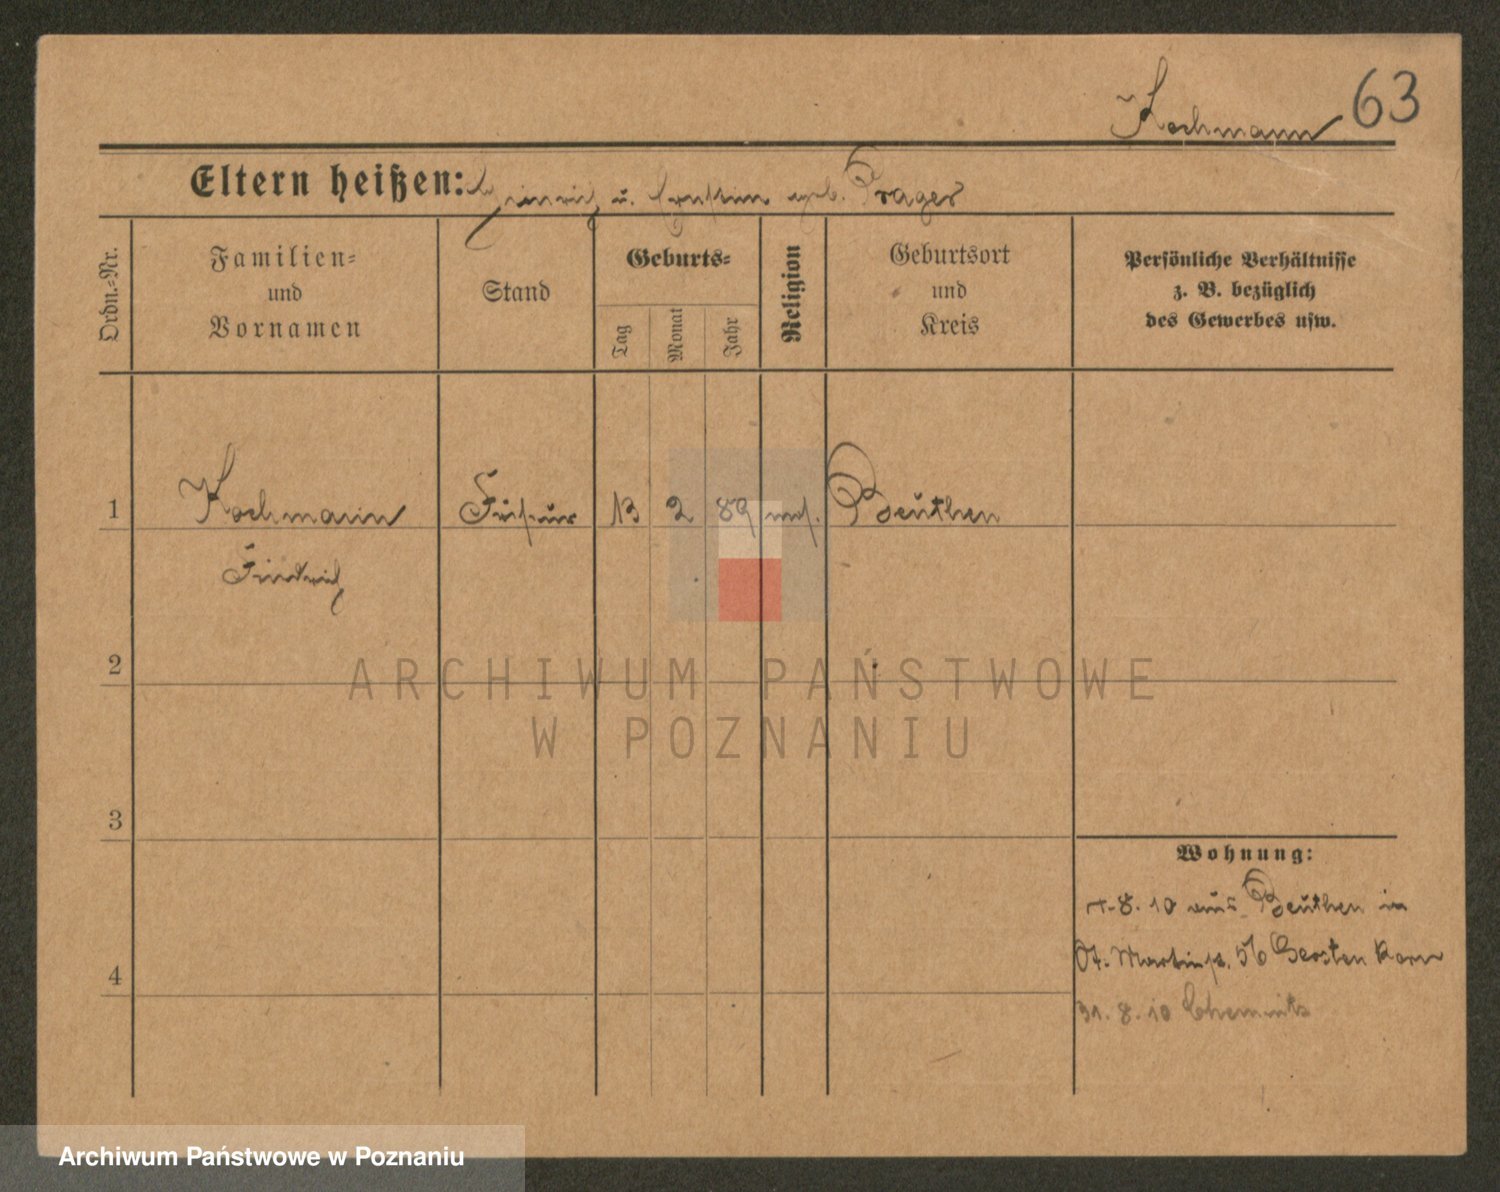 Kochmann 63
Eltern heißen: Heinrich u. Ernstine geb. Prager
Ordn.-Nr.
Familien-
und
Vornamen
Stand
Geburts-
Tag
Monat
Jahr
Religion
Geburtsort
und
Kreis
Persönliche Verhältnisse
z. B. bezüglich
des Gewerbes usw.
1 Kochmann Friseur 13 2 89 mos. Beuthen
Friedrich
2
ARCHIWUM PAŃSTWOWE
W POZNANIU
3
Wohnung:
8. 10 aus Beuthen in
St. Martinstr. 56 Gerstenkorn
4
31. 8. 10 Chemnitz
Archiwum Państwowe w Poznaniu